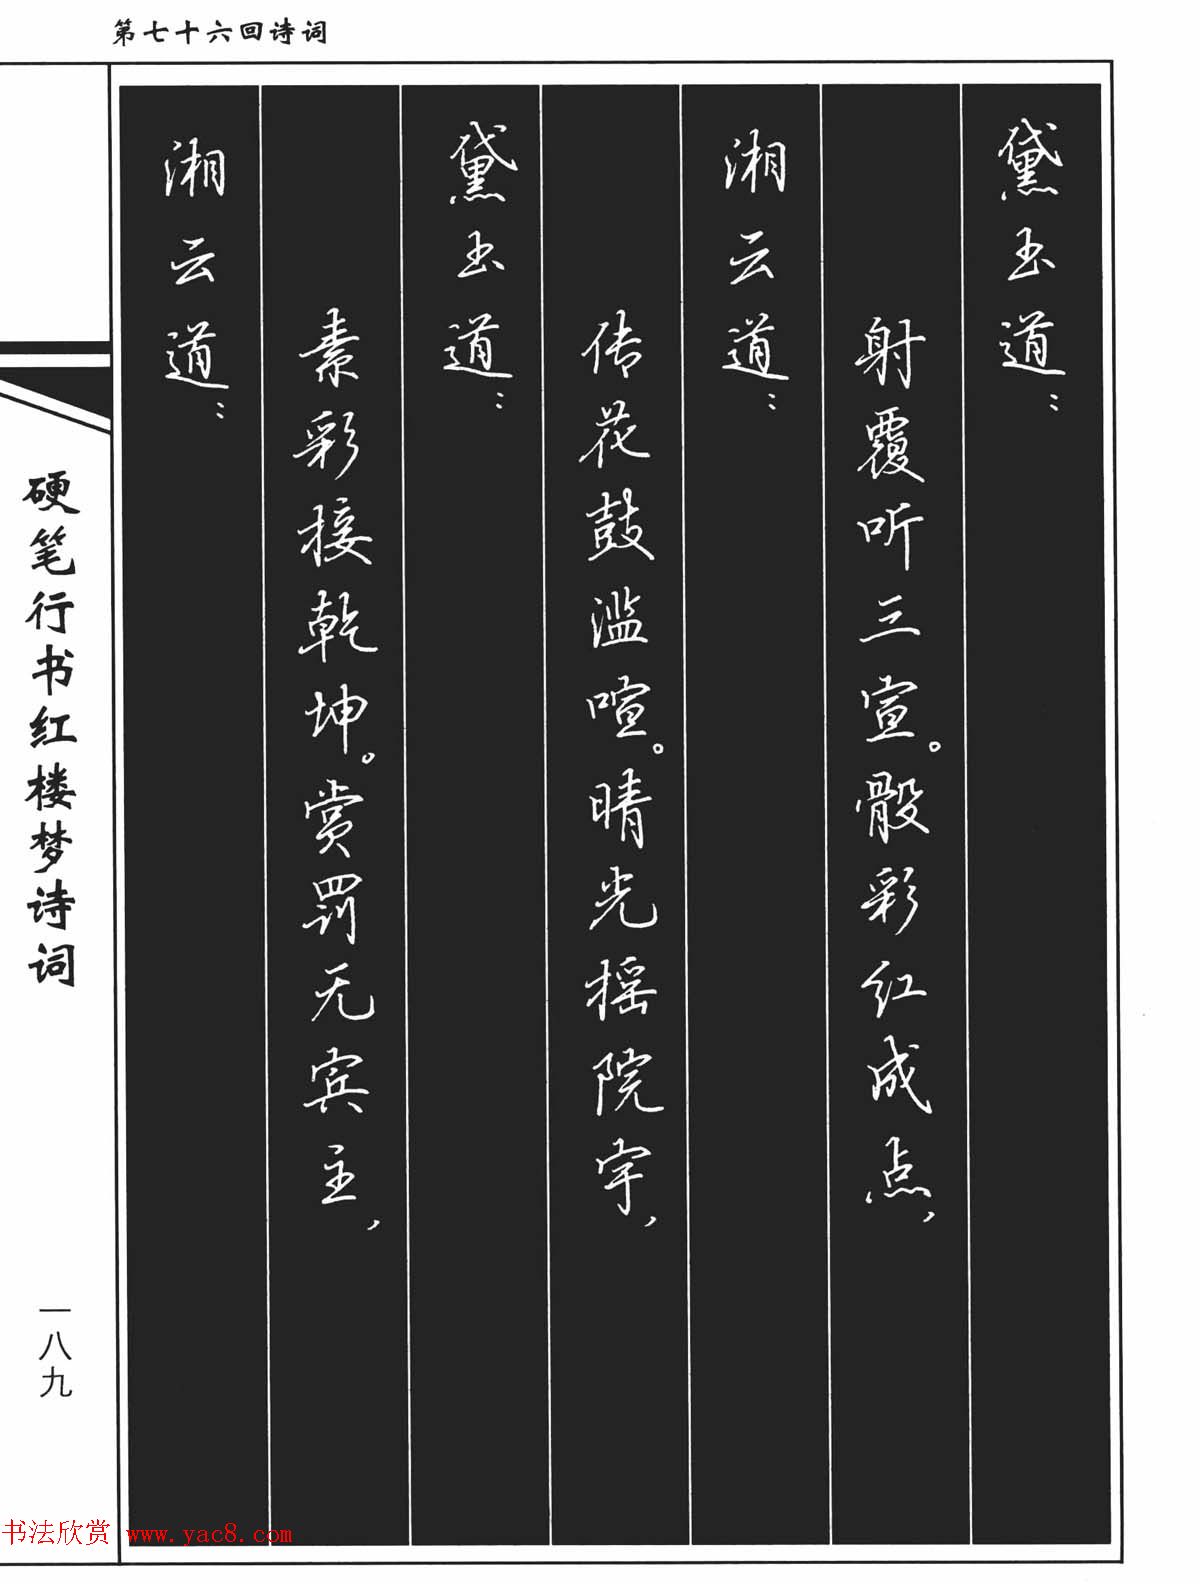 第七十六回诗词
黛玉道：
射覆听三宣。骰彩红成点，
湘云道：
传花鼓滥喧。晴光摇院宇，
黛玉道：
素彩接乾坤。赏罚无宾主，
湘云道：
硬笔行书红楼梦诗词
一八九
书法欣赏 www.yac8.com